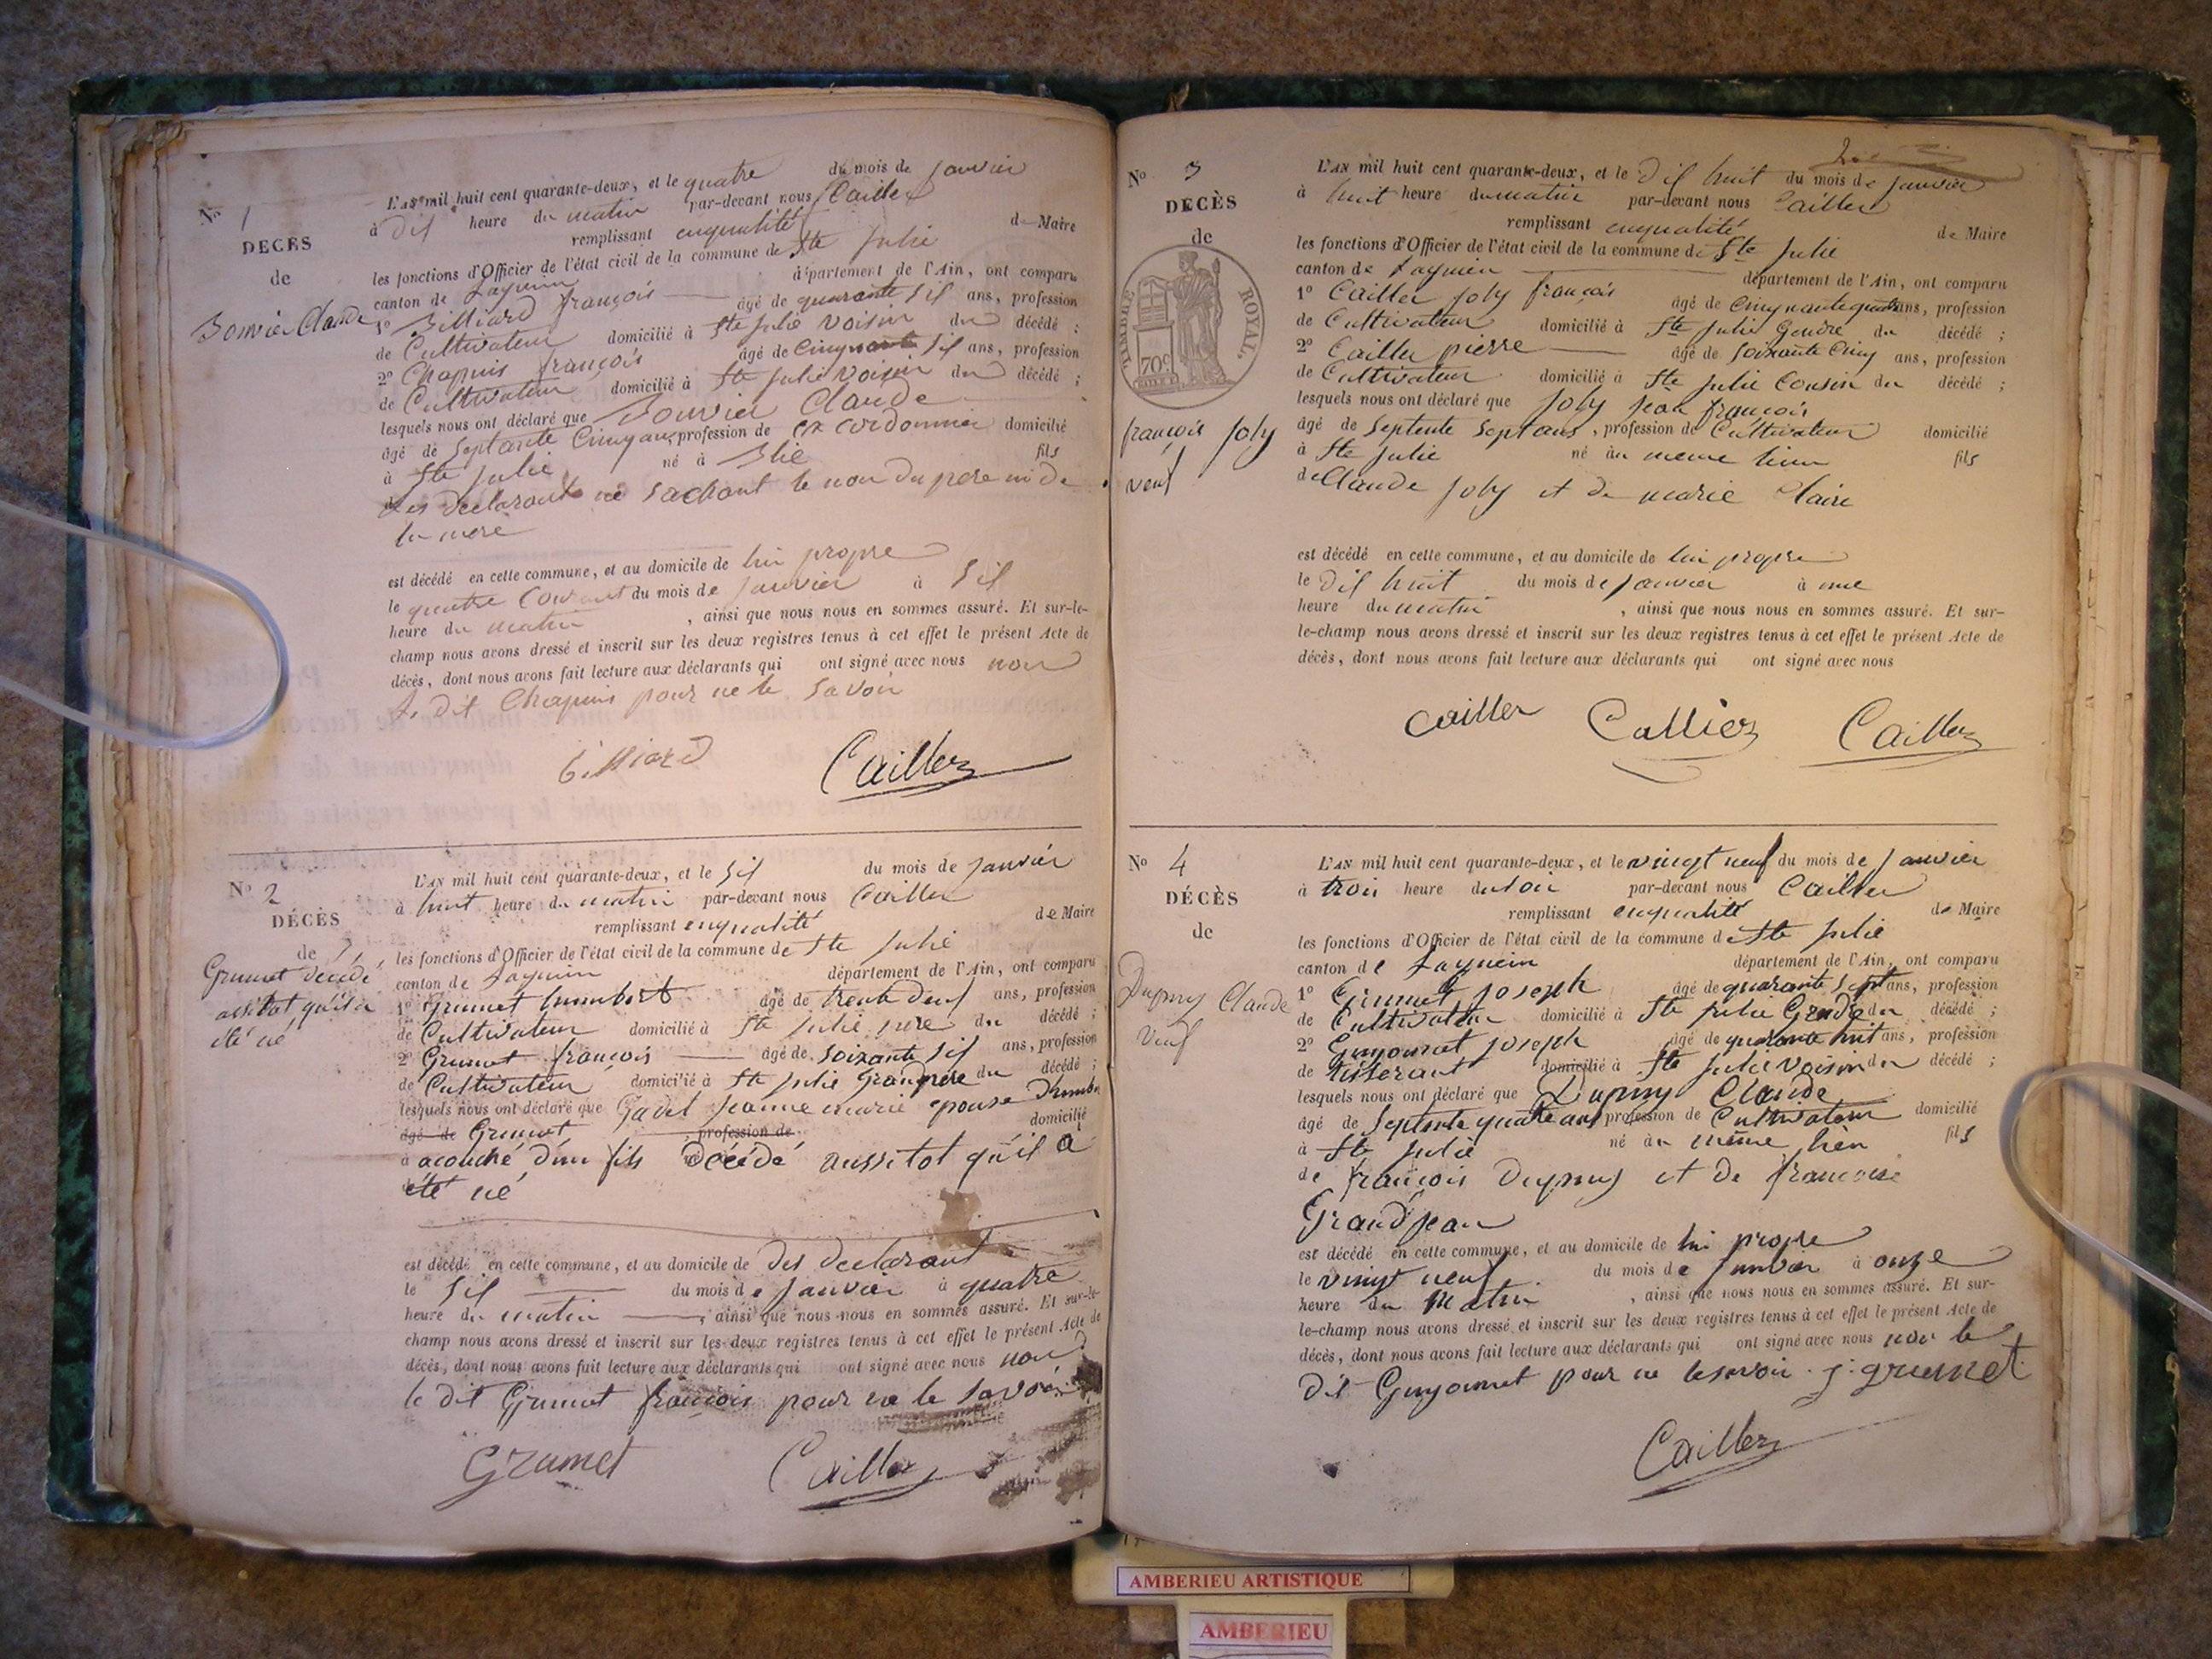 No 1
DECÈS
de
Bouvier Claude
L'AN mil huit cent quarante-deux, et le quatre du mois de janvier
à dix heure du matin par-devant nous Cailler
remplissant enqualité de Maire
les fonctions d'Officier de l'état civil de la commune de Ste julie
canton de Lagnieu département de l'Ain, ont comparu
1o Billiard françois âgé de quarante six ans, profession
de Cultivateur domicilié à Ste julie voisin du décédé ;
2o Chapuis françois âgé de Cinquante six ans, profession
de Cultivateur domicilié à Ste julie voisin du décédé ;
lesquels nous ont déclaré que Bouvier Claude
âgé de septante Cinq ans, profession de ex cordonnier domicilié
à Ste julie né à Blie fils
des declarants ne sachant le nom du pere ni de
la mere
est décédé en cette commune, et au domicile de lui propre
le quatre courant du mois de janvier à six
heure du matin , ainsi que nous nous en sommes assuré. Et sur-le-
champ nous avons dressé et inscrit sur les deux registres tenus à cet effet le présent Acte de
décès, dont nous avons fait lecture aux déclarants qui ont signé avec nous non
le dit Chapuis pour ne le savoir
billiard Cailler
No 2
DÉCÈS
de
Grumet decedé
assitot qu'il a
été né
L'AN mil huit cent quarante-deux, et le six du mois de janvier
à huit heure du matin par-devant nous Cailler
remplissant enqualité de Maire
les fonctions d'Officier de l'état civil de la commune de Ste julie
canton de Lagnieu département de l'Ain, ont comparu
1o Grumet humbert âgé de trente deux ans, profession
de Cultivateur domicilié à Ste julie pere du décédé ;
2o Grumet françois âgé de soixante six ans, profession
de Cultivateur domicilié à Ste julie Grandpére du décédé ;
lesquels nous ont déclaré que jeanne marie epouse
âgé de Grumet profession de domicilié
à acouché d'un fils décédé aussitot qu'il a
été né
est décédé en cette commune, et au domicile de des declarant
le six du mois de janvier à quatre
heure du matin , ainsi que nous nous en sommes assuré. Et sur-le-
champ nous avons dressé et inscrit sur les deux registres tenus à cet effet le présent Acte de
décès, dont nous avons fait lecture aux déclarants qui ont signé avec nous non
le dit Grumet françois pour ne le savoir
Grumet Cailler
No 3
DÉCÈS
de
TIMBRE ROYAL.
70c
françois joly
veuf
L'AN mil huit cent quarante-deux, et le dix huit du mois de janvier
à huit heure du matin par-devant nous Cailler
remplissant enqualité de Maire
les fonctions d'Officier de l'état civil de la commune de Ste julie
canton de Lagnieu département de l'Ain, ont comparu
1o Cailler joly françois âgé de Cinquante quatre ans, profession
de Cultivateur domicilié à Ste julie Gendre du décédé ;
2o Cailler pierre âgé de soixante Cinq ans, profession
de Cultivateur domicilié à Ste julie Cousin du décédé ;
lesquels nous ont déclaré que joly jean françois
âgé de septente sept ans, profession de Cultivateur domicilié
à Ste julie né au meme lieu fils
de Claude joly et de marie Claire
est décédé en cette commune, et au domicile de lui propre
le dix huit du mois de janvier à une
heure du matin , ainsi que nous nous en sommes assuré. Et sur-
le-champ nous avons dressé et inscrit sur les deux registres tenus à cet effet le présent Acte de
décès, dont nous avons fait lecture aux déclarants qui ont signé avec nous
cailler Callier Cailler
No 4
DÉCÈS
de
Dupuy Claude
veuf
L'AN mil huit cent quarante-deux, et le vingt neuf du mois de janvier
à trois heure du soir par-devant nous Cailler
remplissant enqualité de Maire
les fonctions d'Officier de l'état civil de la commune de Ste julie
canton de Lagnieu département de l'Ain, ont comparu
1o Grumet joseph âgé de quarante sept ans, profession
de Cultivateur domicilié à Ste julie Gendre du décédé ;
2o Guyonnet joseph âgé de quarante huit ans, profession
de tisserant domicilié à Ste julie voisin du décédé ;
lesquels nous ont déclaré que Dupuy Claude
âgé de septente quatre ans profession de Cultivateur domicilié
à Ste julie né au même lieu fils
de françois Dupuy et de francoise
Grandjean
est décédé en cette commune, et au domicile de lui propre
le vingt neuf du mois de janvier à onze
heure du matin , ainsi que nous nous en sommes assuré. Et sur-
le-champ nous avons dressé et inscrit sur les deux registres tenus à cet effet le présent Acte de
décès, dont nous avons fait lecture aux déclarants qui ont signé avec nous non le
dit Guyonnet pour ne le savoir. j. grumet
Cailler
AMBERIEU ARTISTIQUE
AMBERIEU